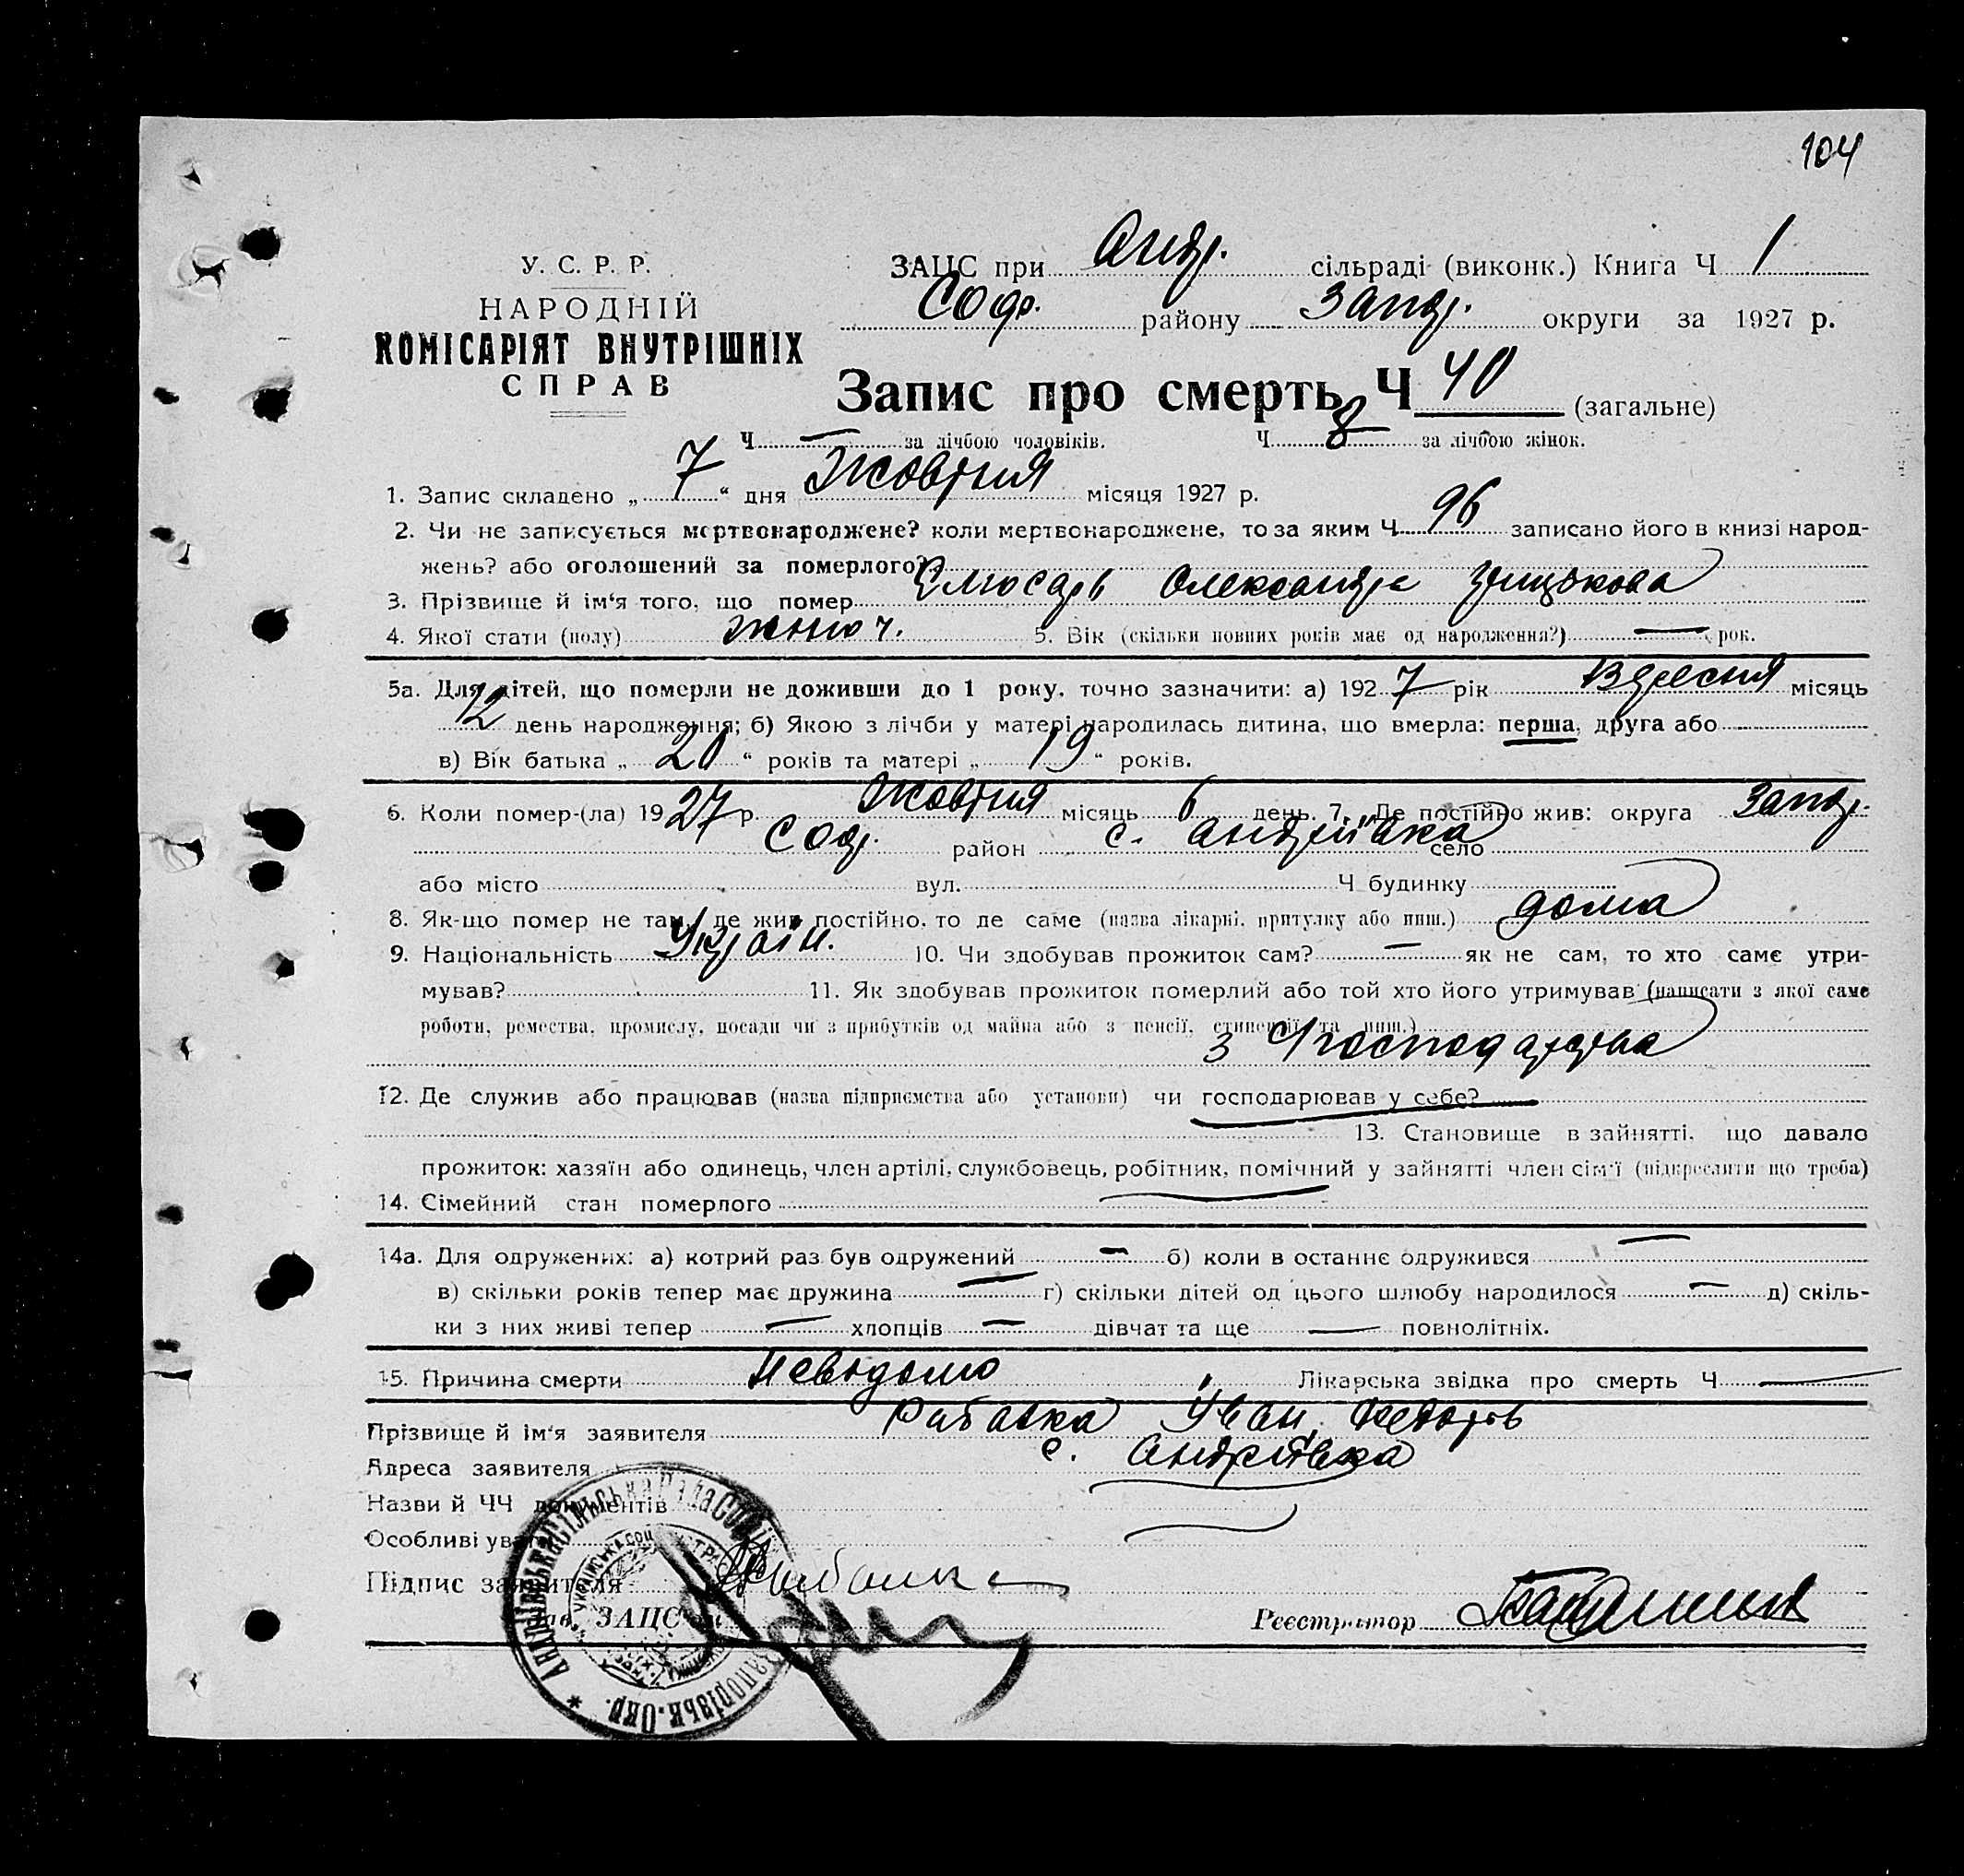 104
У. С. Р. Р.
НАРОДНІЙ
КОМІСАРІЯТ ВНУТРІШНІХ
СПРАВ
ЗАЦС при Андр. сільраді (виконк.) Книга Ч 1
Соф. району Запор. округи за 1927 р.
Запис про смерть Ч 40 (загальне)
Ч — за лічбою чоловіків. Ч 8 за лічбою жінок.
1. Запис складено „ 7 “ дня Жовтня місяця 1927 р.
2. Чи не записується мертвонароджене? коли мертвонароджене, то за яким Ч 96 записано його в книзі народ-
жень? або оголошений за померлого?
3. Прізвище й ім‘я того, що помер Слюсарь Олександра
4. Якої стати (полу) жіноч. 5. Вік (скільки повних років має од народження?) — рок.
5а. Для дітей, що померли не доживши до 1 року, точно зазначити: а) 1927 рік Вересня місяць
12 день народження; б) Якою з лічби у матері народилась дитина, що вмерла: перша, друга або
в) Вік батька „ 20 “ років та матері „ 19 “ років.
6. Коли помер-(ла) 1927 р. Жовтня місяць 6 день. 7. Де постійно жив: округа Запор.
Соф. район с. Андріївка село
або місто вул. Ч будинку
8. Як-що помер не там, де жив постійно, то де саме (назва лікарні, притулку або инш.) дома
9. Національність Україн. 10. Чи здобував прожиток сам? — як не сам, то хто саме утри-
мував? 11. Як здобував прожиток померлий або той хто його утримував (написати з якої саме
роботи, ремества, промислу, посади чи з прибутків од майна або з пенсії, стипендії та инш.)
з Господарства
12. Де служив або працював (назва підприємства або установи) чи господарював у себе?
13. Становище в зайнятті, що давало
прожиток: хазяїн або одинець, член артілі, службовець, робітник, помічний у зайнятті член сім‘ї (підкреслити що треба)
14. Сімейний стан померлого
14а. Для одружених: а) котрий раз був одружений — б) коли в останнє одружився —
в) скільки років тепер має дружина — г) скільки дітей од цього шлюбу народилося — д) скіль-
ки з них живі тепер — хлопців — дівчат та ще — повнолітніх.
15. Причина смерти Невідомо, Лікарська звідка про смерть Ч —
Прізвище й ім‘я заявителя Рибалка Иван Федоров
Адреса заявителя с. Андріївка
Назви й ЧЧ документів
Особливі уваги
Підпис заявителя Рибалка
Зав. ЗАЦС'ом
Реєстратор
АНДРІЇВСЬКА СІЛЬСЬКА РАДА ЗАПОРІЗЬК. ОКР.